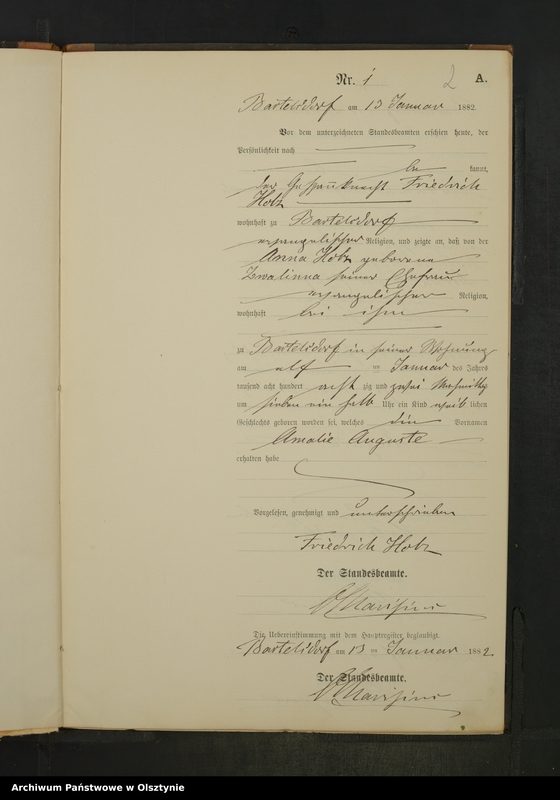 Nr. 1 2 A.
Bartelsdorf am 13 Januar 1882.
Vor dem unterzeichneten Standesbeamten erschien heute, der
Persönlichkeit nach
be kannt,
der Friedrich
Hotz
wohnhaft zu Bartelsdorf
evangelischer Religion, und zeigte an, daß von der
Anna Hotz geborene
seiner Ehefrau
evangelischer Religion,
wohnhaft bei ihm
zu Bartelsdorf in seiner Wohnung
am elf ten Januar des Jahres
tausend acht hundert acht zig und zwei Vormittag
um sieben ein halb Uhr ein Kind weib lichen
Geschlechts geboren worden sei, welches die Vornamen
Amalie Auguste
erhalten habe
Vorgelesen, genehmigt und unterschrieben
Friedrich Hotz
Der Standesbeamte.
Die Uebereinstimmung mit dem Hauptregister beglaubigt.
Bartelsdorf am 13 ten Januar 1882
Der Standesbeamte.
Archiwum Państwowe w Olsztynie